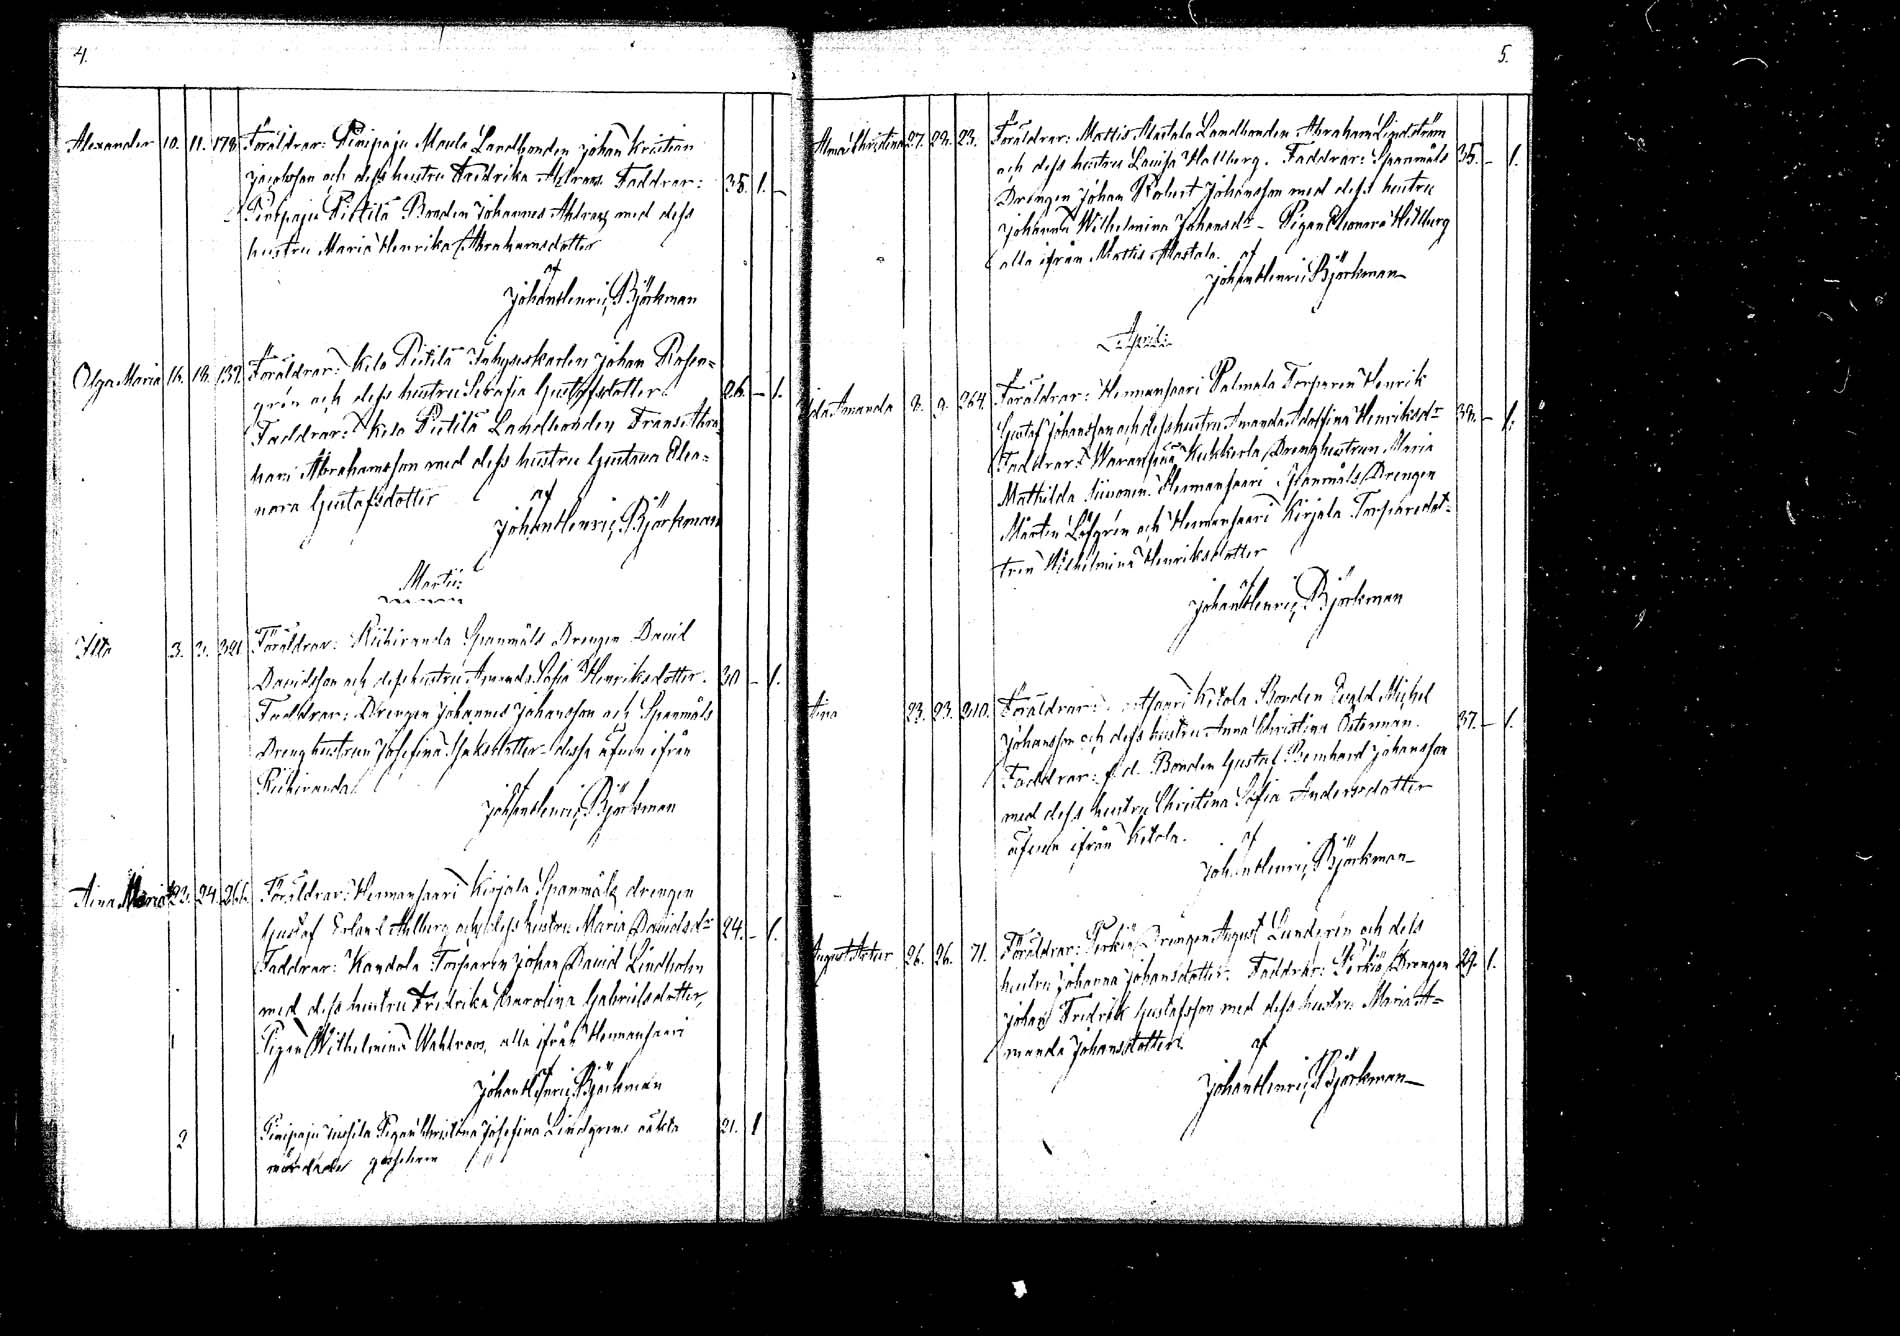 4.
Alexander 10. 11. 178. Föräldrar: Pinipaju Maula Landbonden Johan Kristian
Jacobsson och dess hustru Fredrika Ahlroos. Faddrar: 35. 1. -
Pinipaju Pietilä Bonden Johannes Ahlroos med dess
hustru Maria Henrika Abrahamsdotter
af
Johan Henric Björkman
Olga Maria 16. 18. 137. Föräldrar: Kelo Pietilä Inhyseskarlen Johan Rosen=
grén och dess hustru Serafia Gustafsdotter. 26. - 1.
Faddrar: Kelo Pietilä Landbonden Frans Abra=
ham Abrahamsson med dess hustru Gustava Eleo=
nora Gustafsdotter
af
Johan Henric Björkman
Martii:
3. 3. 321 Föräldrar: Riihiranda Spanmåls Drengen David
Davidsson och dess hustru Amanda Sofia Henriksdotter. 30 - 1.
Faddrar: Drengen Johannes Johansson och Spanmåls
Dreng hustrun Josefina Isaksdotter dessa äfven ifrån
Riihiranda.
af
Johan Henric Björkman
Aina Maria 23. 24. 266. Föräldrar: Hermansaari Kirjala Spanmåls drengen
Gustaf Erland Ahlberg och dess hustru Maria Davidsdr 24. - 1.
Faddrar: Kandola Torparen Johan David Lindholm
med dess hustru Fredrika Karolina Gabrielsdotter,
Pigan Wilhelmina Wahlroos, alla ifrån Hermansaari
af
Johan Henric Björkman
2 Pinipaju Pigan Christina Josefina Lindgrens oäkta 21. 1
gossebarn
5.
Alma Christina 27. 28. 23. Föräldrar: Mattis Alastalo Landbonden Abraham Lindström
och dess hustru Lovisa Hallberg. Faddrar: Spanmåls 35. - 1.
Drengen Johan Robert Johansson med dess hustru
Johanna Wilhelmina Johansdr - Pigan Eleonora Hellberg
alla ifrån Mattis Alastalo.
af
Johan Henric Björkman
April:
Amanda 8. 9. 264. Föräldrar: Hermansaari Palmala Torparen Henrik
Gustaf Johansson och dess hustru Amanda Adolfina Henriksdr 38. - 1.
Faddrar: Waranpää Kukkerla Dreng hustrun Maria
Mathilda Siivonen. Hermansaari Spanmåls Drengen
Mårten Löfgrén och Hermansaari Kirjala Torparedot=
tren Wilhelmina Henriksdotter
af
Johan Henric Björkman
23. 23. 310. Föräldrar: Kitola Bonden Evald Michel
Johansson och dess hustru Anna Christina Österman. 37. - 1.
Faddrar: f.d. Bonden Gustaf Bernhard Johansson
med dess hustru Christina Sofia Andersdotter
äfven ifrån Kitola.
af
Johan Henric Björkman
August Artur 26. 26. 71. Föräldrar: Perkiö Drengen August Lunderén och dess
hustru Johanna Johansdotter. Faddrar: Perkiö Drengen 29. 1.
Johan Fredrik Gustafsson med dess hustru Maria A=
manda Johansdotter.
af
Johan Henric Björkman